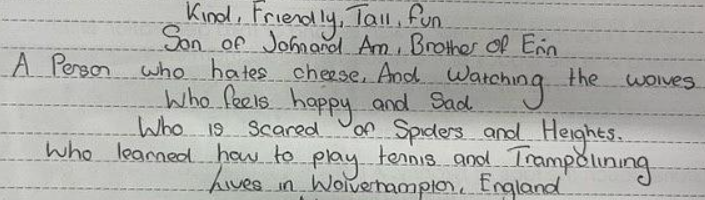 Kind, Friendly, Tall, fun
Son of John and Am, Brother of Erin
A Person who hates cheese, And Watching the wolves
Who feels happy and Sad
Who is scared of Spiders and Heights.
Who learned how to play tennis and Trampolining
Lives in Wolverhampton, England